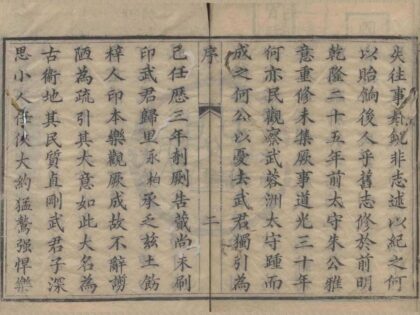 失往事非志述以紀之何
以貽餉後人乎舊志修於前明
乾隆二十五年前太守朱公雅
意重修未集厥事道光三十年
何亦民觀察武蓉洲太守踵而
成之何公以憂去武君獨引為
序
二
己任歷三年剞劂告蕆尚未刷
印武君歸里永柏承乏茲土飭
梓人印本樂觀厥成故不辭譾
陋為疏引其大意如此大名為
古衛地其民質貞剛武君子深
思小人任俠大約猛鷙强悍樂